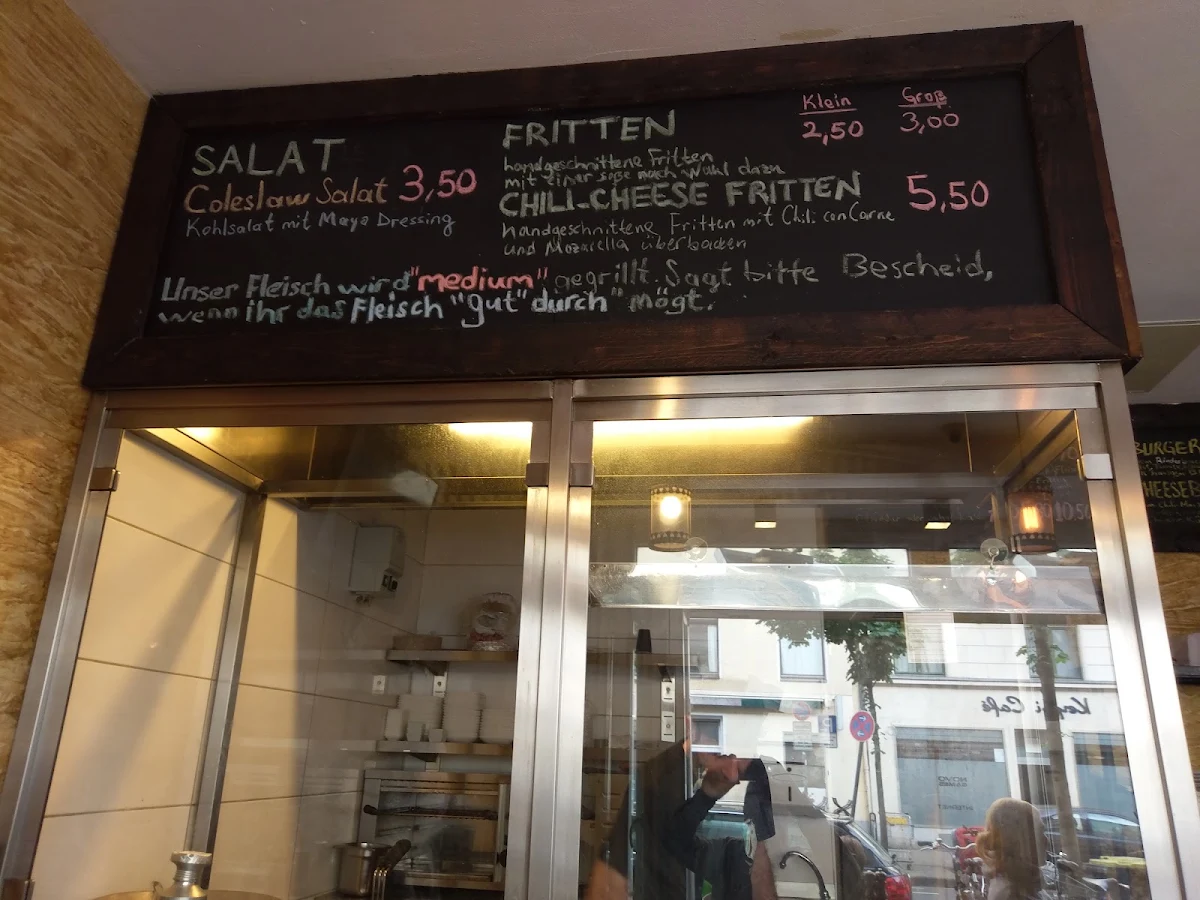 SALAT
Coleslaw Salat 3,50
Kohlsalat mit Mayo Dressing
FRITTEN
Klein Groß
2,50 3,00
handgeschnittene Fritten
mit einer soße nach Wahl dazu
CHILI-CHEESE FRITTEN 5,50
handgeschnittene Fritten mit Chili con Carne
und Mozarella überbacken
Unser Fleisch wird "medium" gegrillt. Sagt bitte Bescheid,
wenn ihr das Fleisch "gut" durch" mögt.
BURGER
CHEESEB
Café